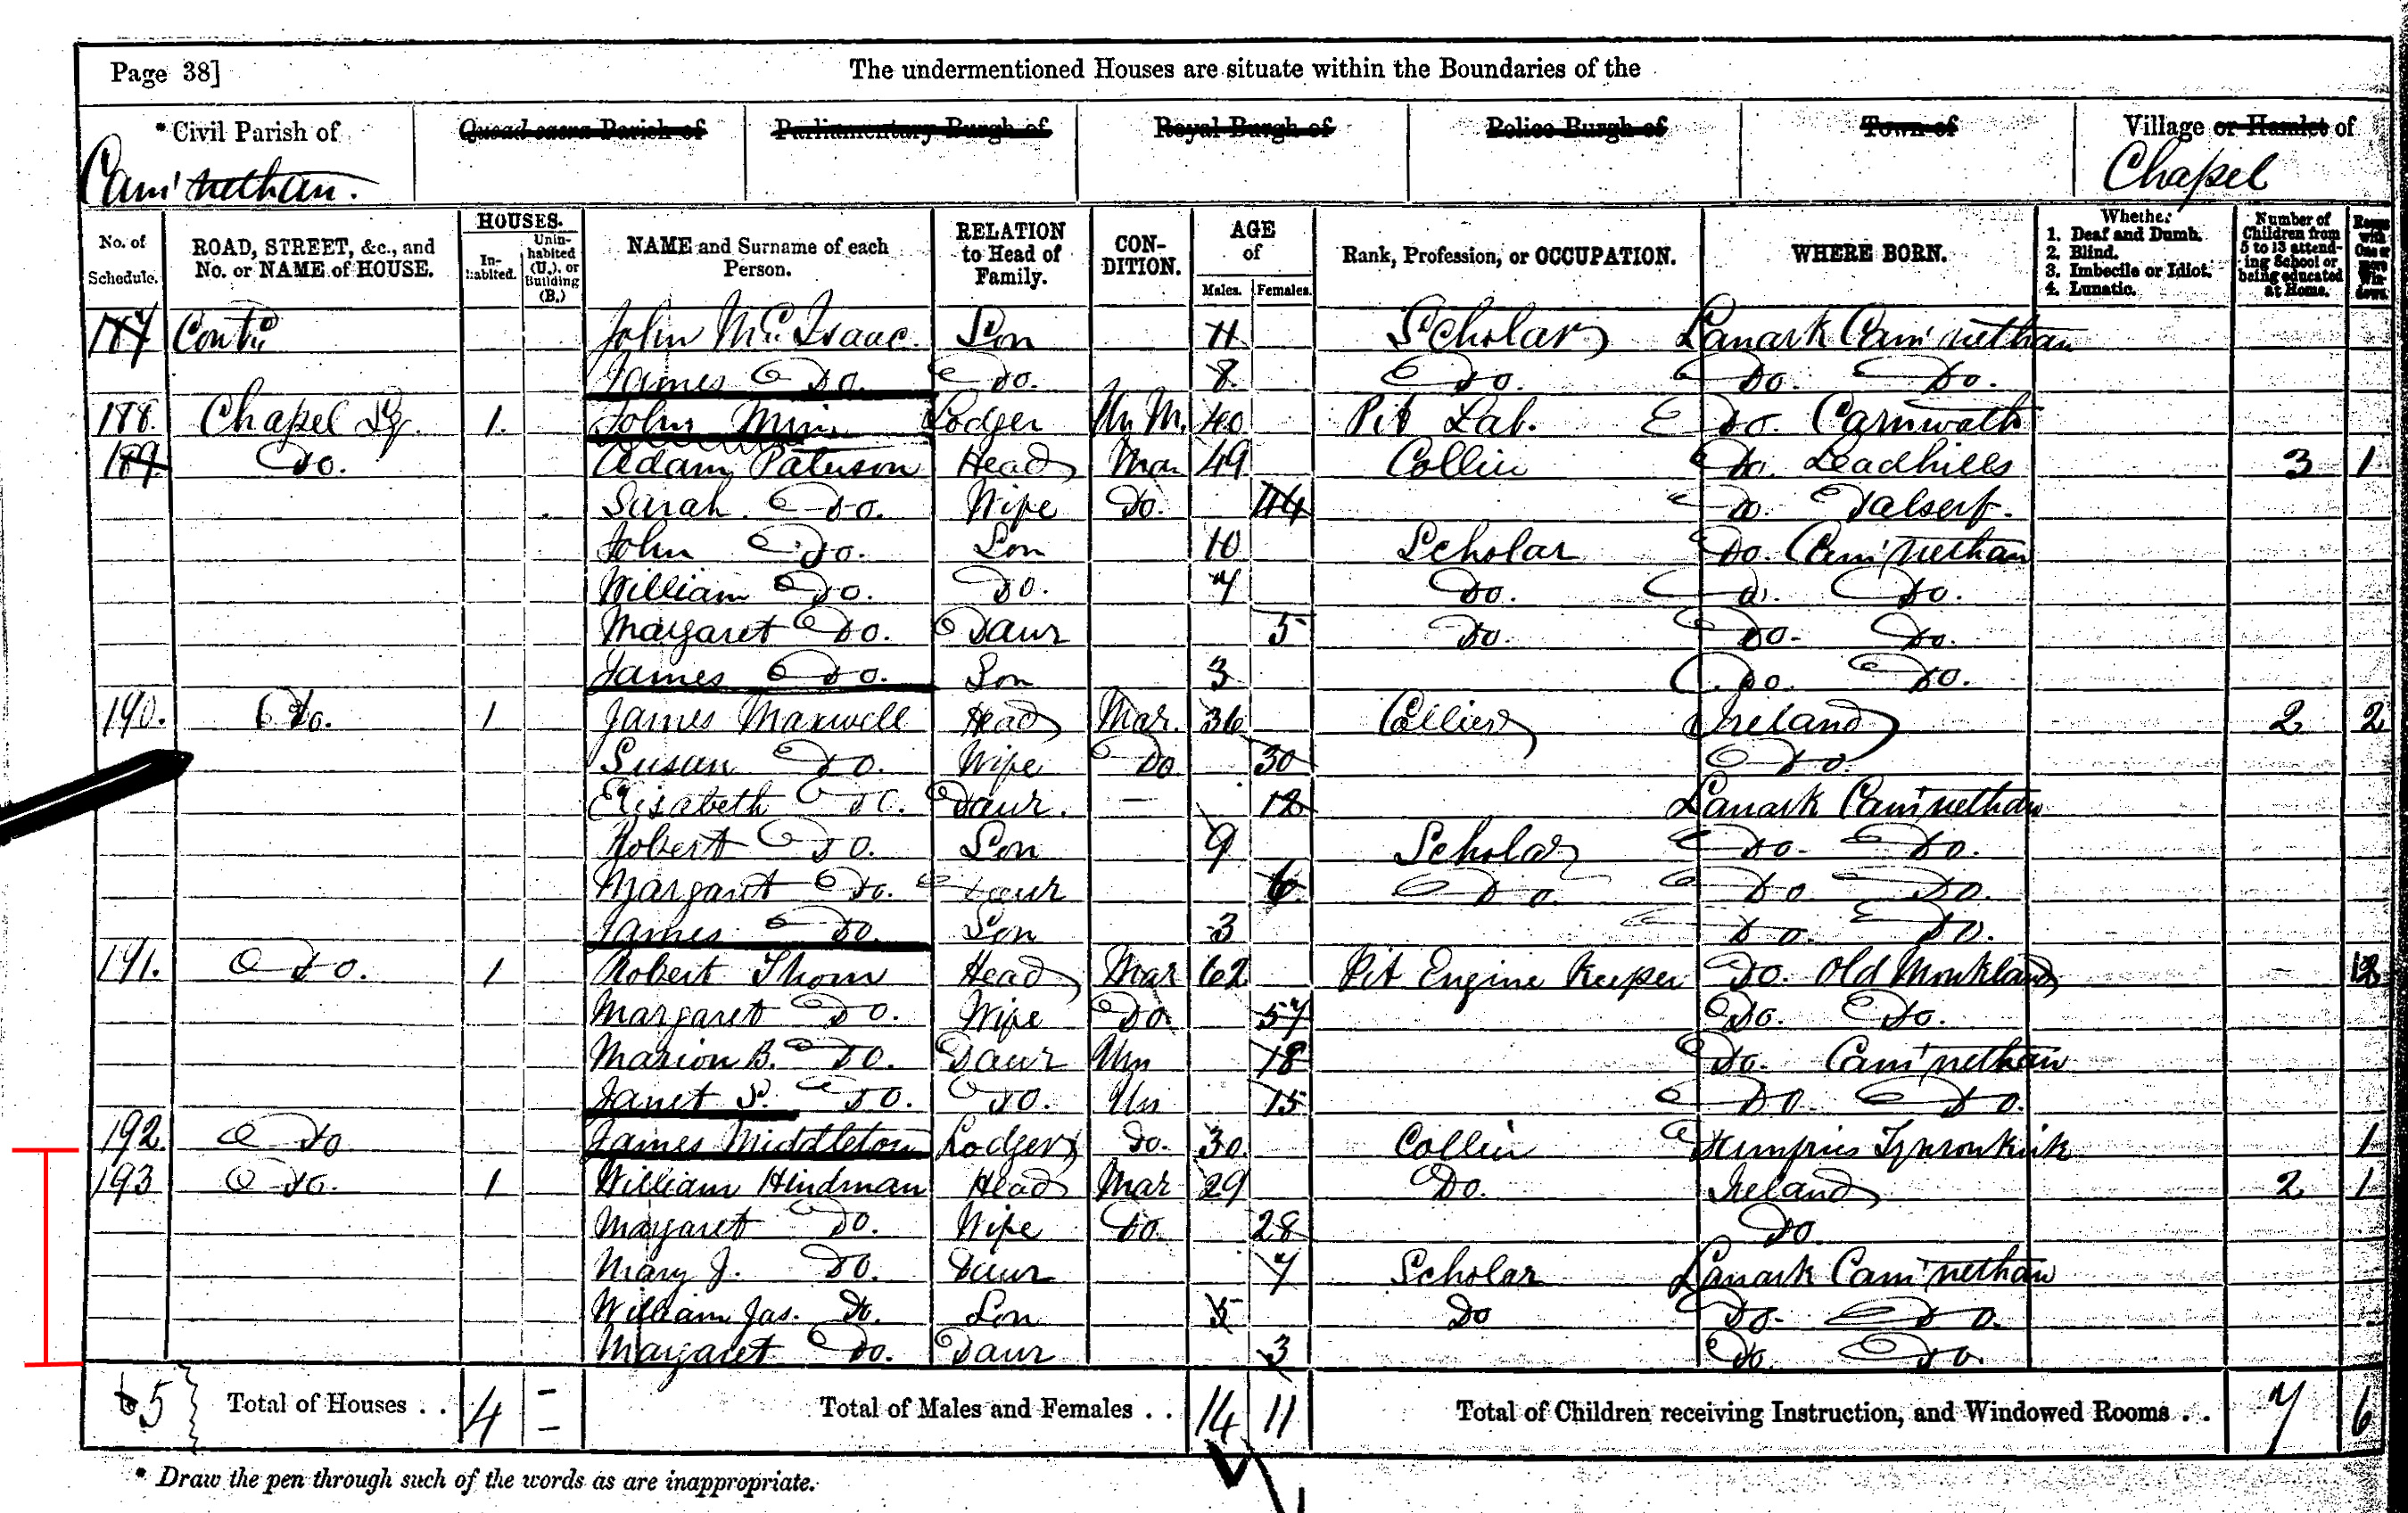 Page 38] The undermentioned Houses are situate within the Boundaries of the
* Civil Parish of Quoad sacra Parish of Parliamentary Burgh of Royal Burgh of Police Burgh of Town of Village or Hamlet of
Cam'nethan. Chapel
No. of Schedule. ROAD, STREET, &c., and No. or NAME of HOUSE. HOUSES. Inhabited. Uninhabited (U.), or Building (B.) NAME and Surname of each Person. RELATION to Head of Family. CONDITION. AGE of Males. Females. Rank, Profession, or OCCUPATION. WHERE BORN. Whether 1. Deaf and Dumb. 2. Blind. 3. Imbecile or Idiot. 4. Lunatic. Number of Children from 5 to 13 attending School or being educated at Home. Rooms with One or more Windows.
187 Contd John McIsaac Son 11 Scholar Lanark Cam'nethan
James Do. Do. 8 Do. Do. Do.
188. Chapel 1. John Lodger Un M. 40 Pit Lab. Do. Carnwath
189. Do. Adam Paterson Head Mar 49 Collier Do. Leadhills 3 1
Sarah Do. Wife Do. 44 Do. Dalserf.
John Do. Son 10 Scholar Do. Cam'nethan
William Do. Do. 7 Do. Do. Do.
Margaret Do. Daur 5 Do. Do. Do.
James Do. Son 3 Do. Do.
190. Do. 1 James Maxwell Head Mar. 36 Collier Ireland 2 2
Susan Do. Wife Do 30 Do.
Elisabeth Do. Daur. — 12 Lanark Cam'nethan
Robert Do. Son 9 Scholar Do. Do.
Margaret Do. Daur 6 Do. Do Do.
James Do. Son 3 Do. Do.
191. Do. 1 Robert Thom Head Mar 62 Pit Engine Keeper Do. Old Monkland
Margaret Do. Wife Do. 57 Do. Do.
Marion B. Do. Daur Un 18 Do. Cam'nethan
Janet S. Do. Do. Un 15 Do. Do.
192. Do James Middleton Lodger Do. 30 Collier 1
193 Do. 1 William Hindman Head Mar 29 Do. Ireland 2 1
Margaret Do. Wife Do. 28 Do.
Mary J. Do. Daur 7 Scholar Lanark Cam'nethan
William Jas. Do. Son 5 Do Do. Do.
Margaret Do. Daur 3 Do. Do.
5 Total of Houses . . 4 – Total of Males and Females . . 14 11 Total of Children receiving Instruction, and Windowed Rooms . . 7 6
* Draw the pen through such of the words as are inappropriate.